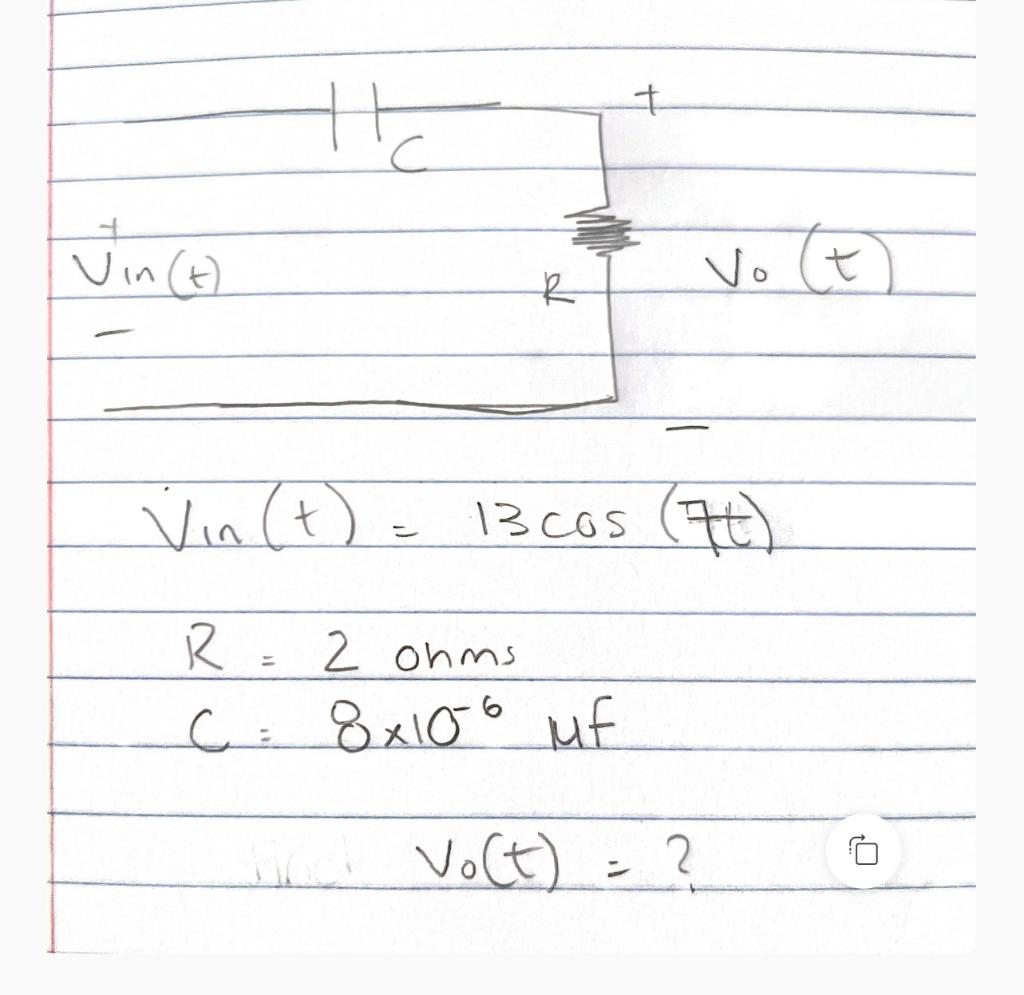 +
C
+
Vin(t)
Vo (t)
R
-
-
Vin(t) = 13 cos (7t)
R = 2 ohms
C = 8x10⁻⁶ μf
Vo(t) = ?